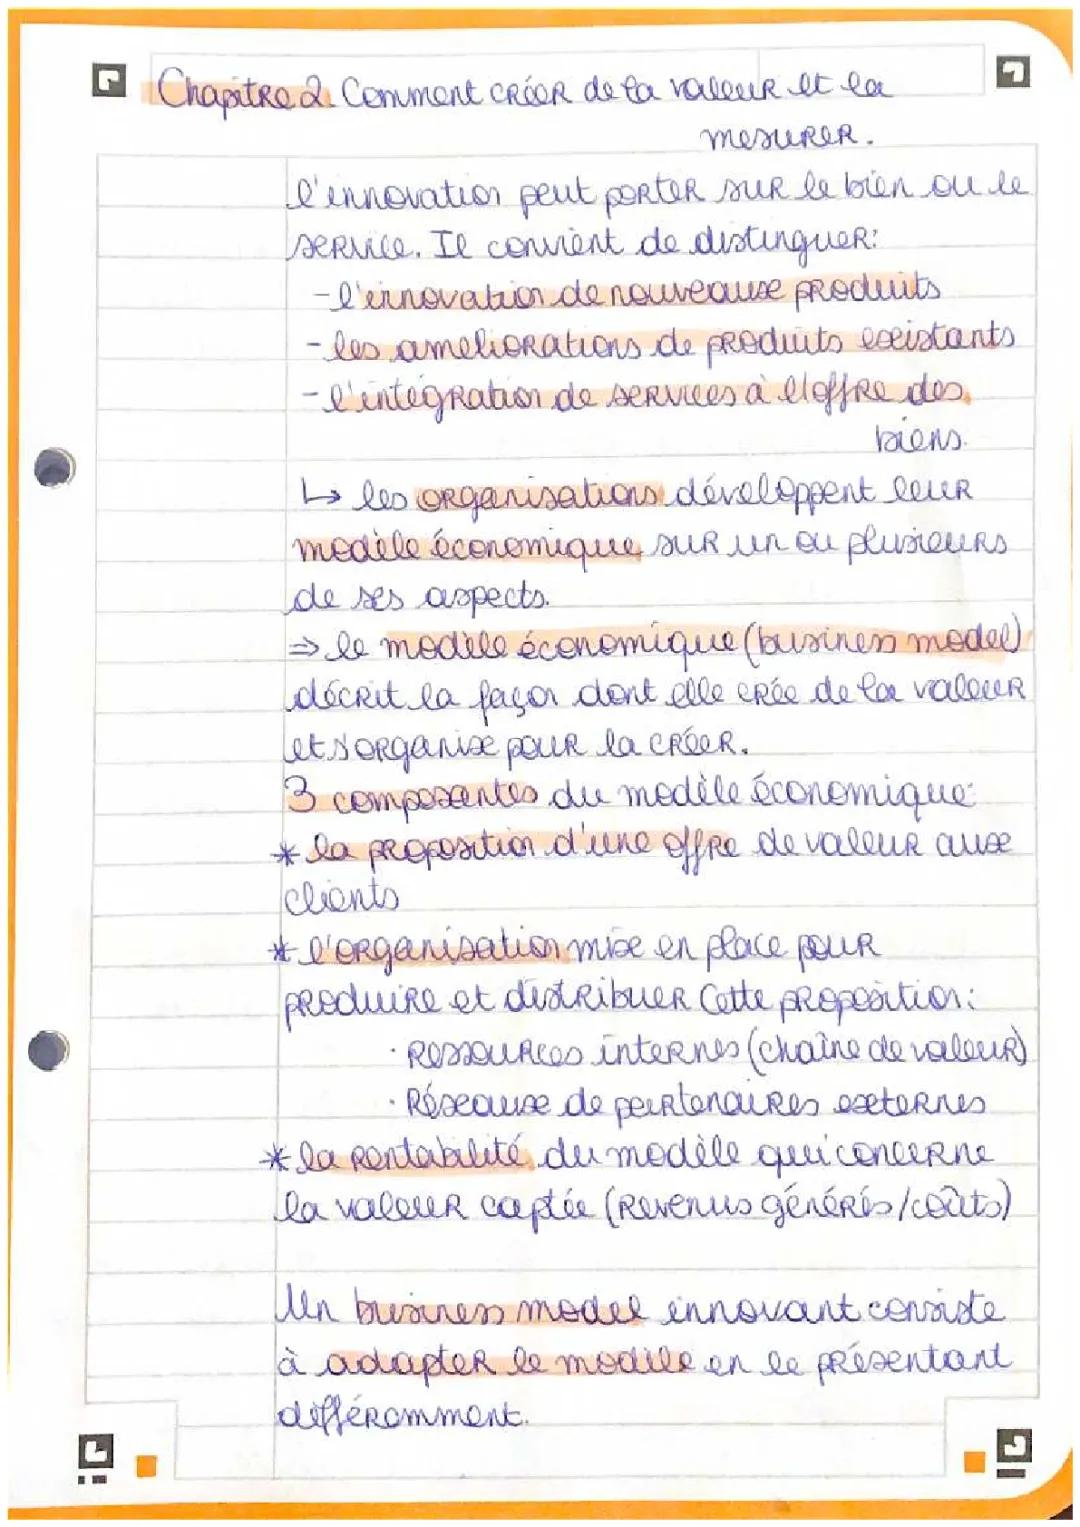 Chapitre 2. Comment créer de la valeur et la
mesurer.
l'innovation peut porter sur le bien ou le
service. Il convient de distinguer:
- l'innovation de nouveaux produits
- les ameliorations de produits existants
- l'intégration de services à l'offre des
biens.
↳ les organisations développent leur
modèle économique sur un ou plusieurs
de ses aspects.
⇒ le modèle économique (business model)
décrit la façon dont elle crée de la valeur
et s'organise pour la créer.
3 composantes du modèle économique:
* la proposition d'une offre de valeur aux
clients
* l'organisation mise en place pour
produire et distribuer cette proposition:
· Ressources internes (chaîne de valeur)
· Réseaux de partenaires externes
* la rentabilité du modèle qui concerne
la valeur captée (revenus générés/coûts)
Un business model innovant consiste
à adapter le modèle en le présentant
différemment.